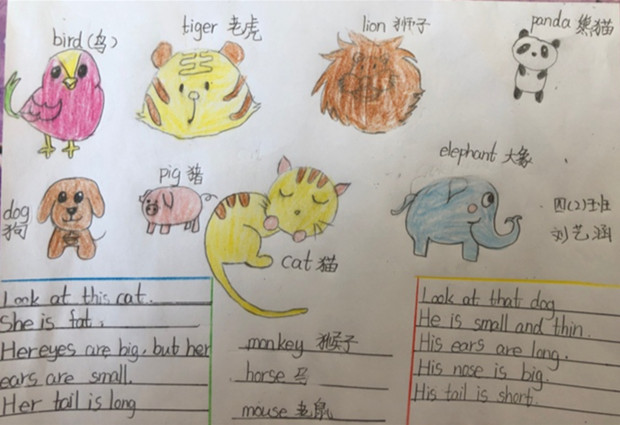 bird (鸟)
tiger 老虎
lion 狮子
panda 熊猫
dog
狗
pig 猪
cat 猫
elephant 大象
四(2)班
刘艺涵
Look at this cat.
She is fat,
Her eyes are big, but her
ears are small.
Her tail is long
monkey 猴子
horse 马
mouse 老鼠
Look at that dog
He is small and thin.
His ears are long.
His nose is big.
His tail is short.